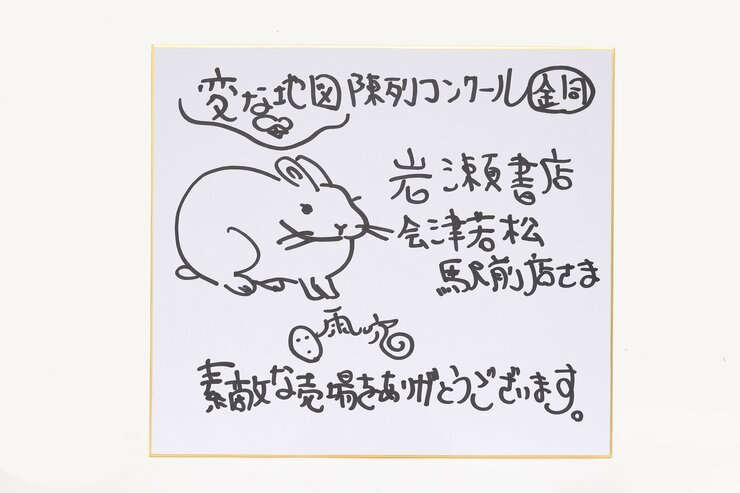 変な地図陳列コンクール銅
岩瀬書店
会津若松
駅前店さま
雨穴
素敵な売場をありがとうございます。